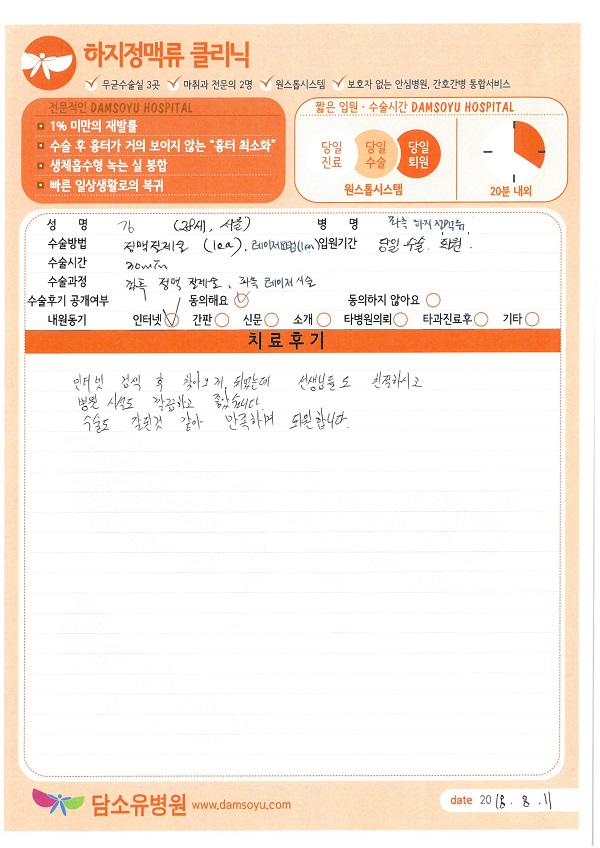 하지정맥류 클리닉
무균수술실 3곳 마취과 전문의 2명 원스톱시스템 보호자 없는 안심병원, 간호간병 통합서비스
전문적인 DAMSOYU HOSPITAL
1% 미만의 재발률
수술 후 흉터가 거의 보이지 않는 "흉터 최소화"
생체흡수형 녹는 실 봉합
빠른 일상생활로의 복귀
짧은 입원·수술시간 DAMSOYU HOSPITAL
당일 진료
당일 수술
당일 퇴원
원스톱시스템
20분 내외
성 명 김 (28세, 서울) 병 명 좌측 하지정맥류
수술방법 정맥절제술 (1ea), 레이저요법(1ea) 입원기간 당일 수술. 퇴원.
수술시간 30min
수술과정 좌측 정맥 절제술, 좌측 레이저 시술
수술후기 공개여부 동의해요 동의하지 않아요
내원동기 인터넷 간판 신문 소개 타병원의뢰 타과진료후 기타
치료후기
인터넷 검색 후 찾아오게 되었는데 선생님들도 친절하시고
병원 시설도 깔끔하고 좋았습니다.
수술도 잘된것 같아 만족하며 퇴원합니다.
담소유병원 www.damsoyu.com
date 2018. 8. 11